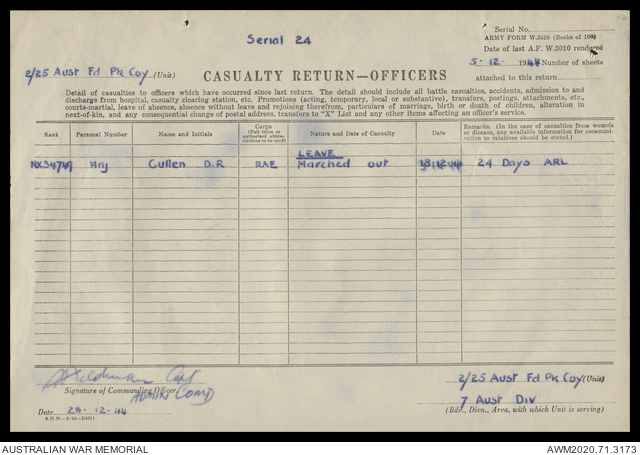 Serial No.
ARMY FORM W.3010 (Books of 100)
Serial 24
Date of last A.F. W.3010 rendered
5.12.1944 Number of sheets
2/25 Aust Fd Pk Coy (Unit)
attached to this return
CASUALTY RETURN—OFFICERS
Detail of casualties to officers which have occurred since last return. The detail should include all battle casualties, accidents, admission to and
discharge from hospital, casualty clearing station, etc. Promotions (acting, temporary, local or substantive), transfers, postings, attachments, etc.,
courts-martial, leave of absence, absence without leave and rejoining therefrom, particulars of marriage, birth or death of children, alteration in
next-of-kin, and any consequential change of postal address, transfers to "X" List and any other items affecting an officer's service.
Rank Personal Number Name and Initials Corps (Full titles or authorized abbreviations to be used) Nature and Date of Casualty Date Remarks. (In the case of casualties from wounds or disease, any available information for communication to relatives should be stated.)
LEAVE
NX34749 Maj Cullen D.R RAE Marched out 18.12.44 24 Days ARL
Capt
Signature of Commanding Officer
ADMIN COMD
2/25 Aust Fd Pk Coy (Unit)
7 Aust Div
Date 28.12.44
(Bde., Divn., Area, with which Unit is serving)
AUSTRALIAN WAR MEMORIAL
AWM2020.71.3173